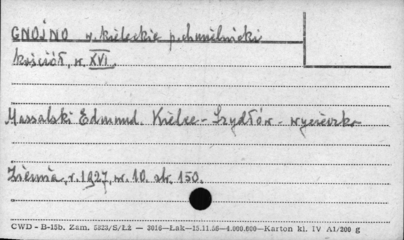 GNOJNO w. kieleckie p. chmielnicki
kościół, w. XVI.
Massalski Edmund. Kielce - Szydłów - wycieczka
Ziemia, r. 1927, nr. 10. str. 150.
CWD - B-15b. Zam. 5823/S/Łż — 2010—Łak—15.11.56—4.000.000—Karton kl. IV A1/200 g